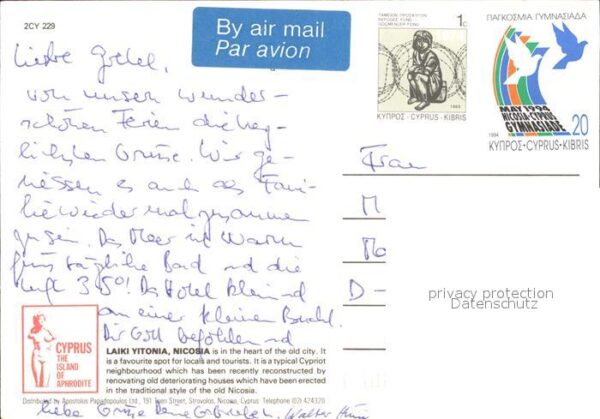 2CY 229
By air mail
Par avion
ΤΑΜΕΙΟΝ ΠΡΟΣΦΥΓΩΝ
REFUGEE FUND
GÖÇMENLER FONU
1c
1995
ΚΥΠΡΟΣ·CYPRUS·KIBRIS
ΠΑΓΚΟΣΜΙΑ ΓΥΜΝΑΣΙΑΔΑ
MAY 1994
NICOSIA-CYPRUS
GYMNASIADE
20
1994
ΚΥΠΡΟΣ·CYPRUS·KIBRIS
Liebe Gretel,
von unseren wunder-
schönen Ferien die herz-
lichsten Grüsse. Wir ge-
niessen es auch als Fami-
lie wieder mal zusammen
zu sein. Das Meer ist warm
fürs tägliche Bad und die
Luft 35°! Das Hotel klein und
an einer kleinen Bucht.
Dir Gott befohlen und
liebe Grüsse Deine Gabriele. Walter
Frau
M
Mo
D-
privacy protection
Datenschutz
CYPRUS
THE
ISLAND
OF
APHRODITE
LAIKI YITONIA, NICOSIA is in the heart of the old city. It
is a favourite spot for locals and tourists. It is a typical Cypriot
neighbourhood which has been recently reconstructed by
renovating old deteriorating houses which have been erected
in the traditional style of the old Nicosia.
Distributed by Apostolos Papadopoulos Ltd., 191 Teen Street, Strovolos, Nicosia, Cyprus Telephone (02) 424320